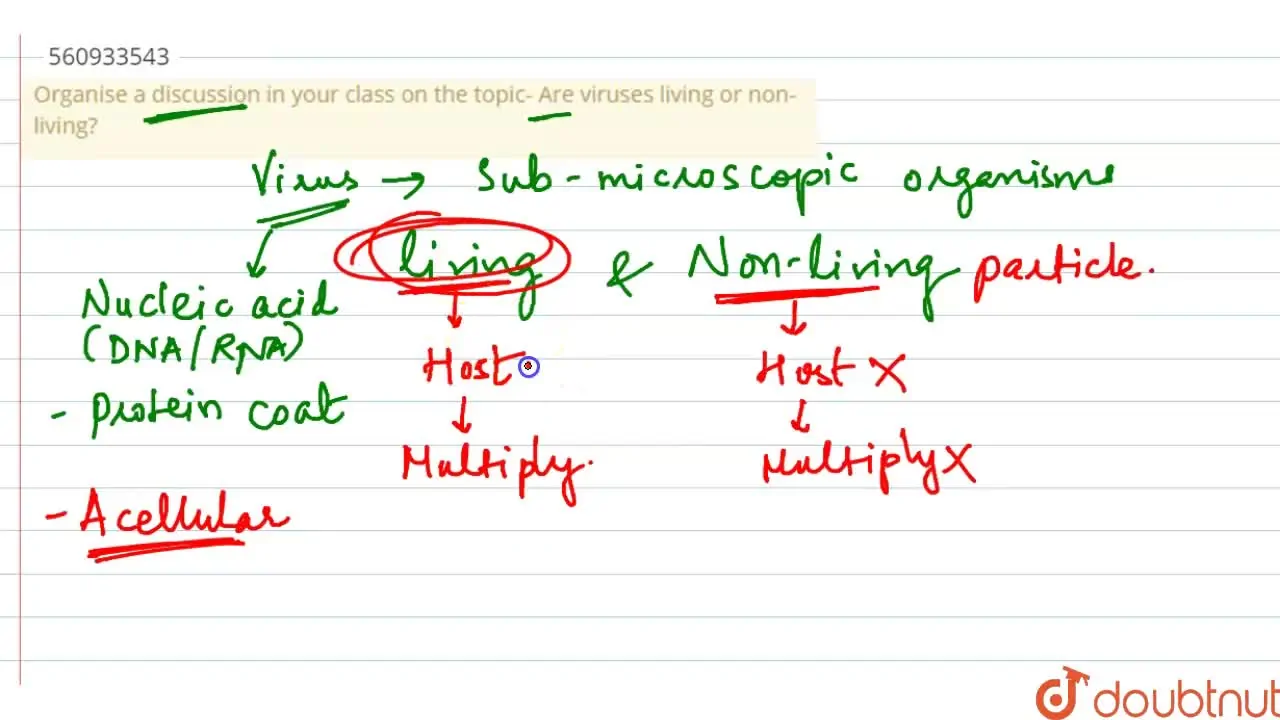 560933543
Organise a discussion in your class on the topic- Are viruses living or non-
living?
Virus → Sub-microscopic organisms
living & Non-living particle.
Nucleic acid
(DNA/RNA)
Host
Host X
- Protein coat
Multiply.
Multiply X
- Acellular
doubtnut